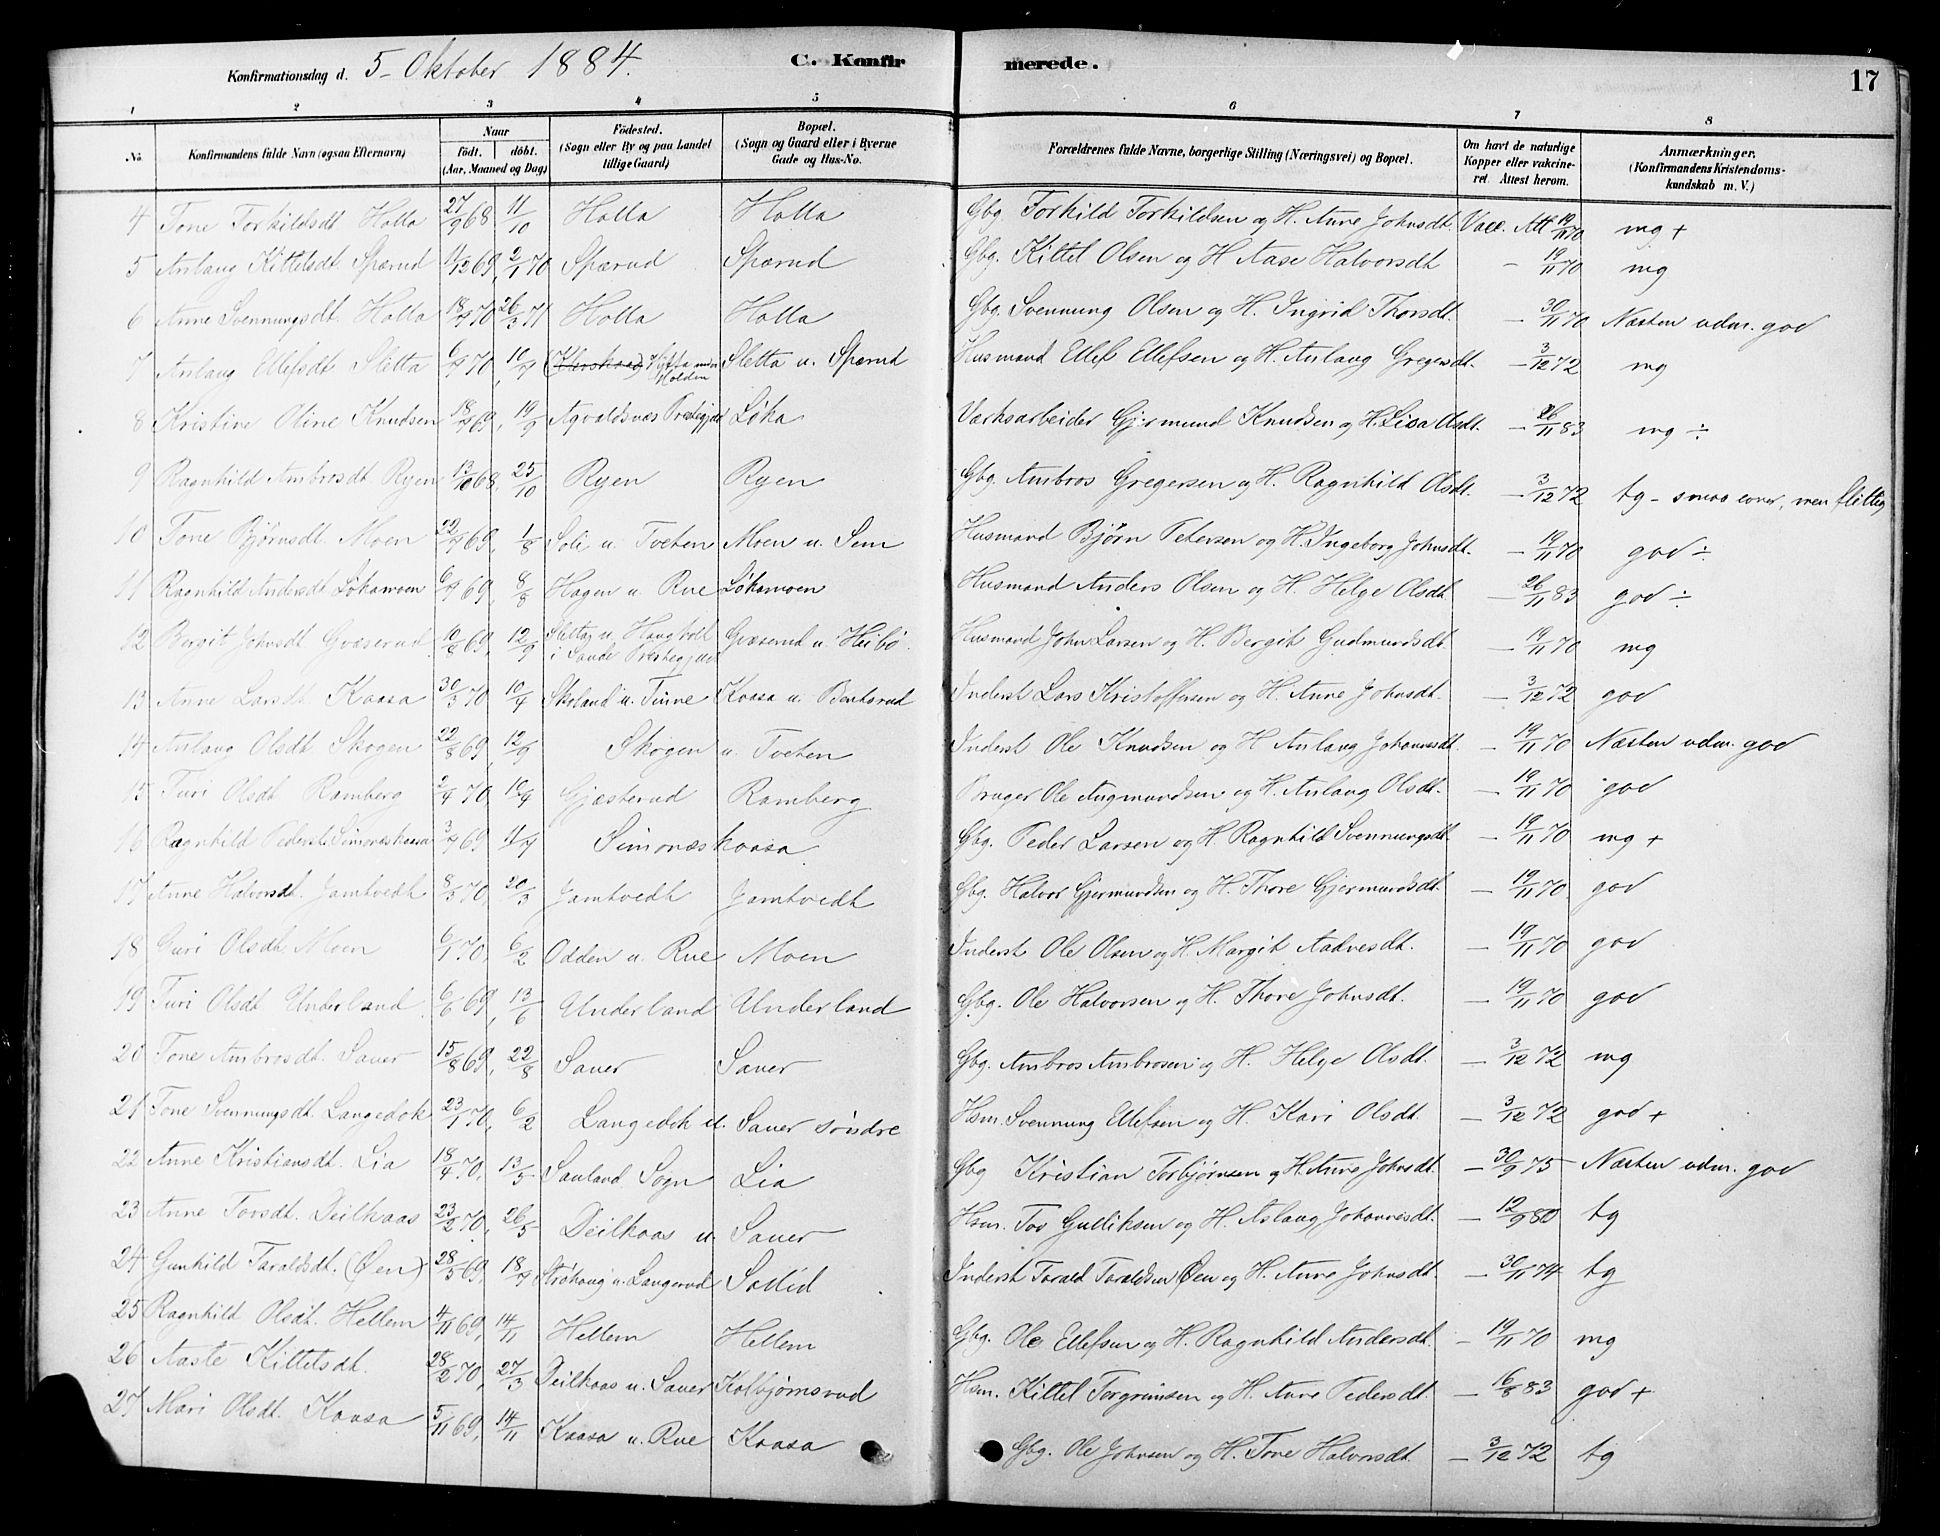 Konfirmationsdag d. 5- Oktober 1884. C. Konfirmerede. 17
1 2 3 4 5 6 7 8
No. Konfirmandens fulde Navn (ogsaa Efternavn) Naar födt. döbt. (Aar, Maaned og Dag) Födested. (Sogn eller By og paa Landet tillige Gaard) Bopæl. (Sogn og Gaard eller i Byerne Gade og Hus-No. Forældrenes fulde Navne, borgerlige Stilling (Næringsvei) og Bopæl. Om havt de naturlige Kopper eller vakcineret. Attest herom. Anmærkninger. (Konfirmandens Kristendomskundskab m. V.)
4 Tone Torkildsdt Holla 27/9 68 11/10 Holla Holla Gbg Torkild Torkildsen og H. Anne Johnsdt. Vacc. Att 19/11 70 mg +
5 Anlaug Kittelsdt. Spærud 11/12 69, 2/1 70 Spærud Spærud Gbg. Kittel Olsen og H Aase Halvorsdt – 19/11 70 mg
6 Anne Svennungsdt. Holla 18/9 70 26/3 71 Holla Holla Gbg. Svennung Olsen og H. Ingrid Thorsdt. – 30/11 70 Næsten udm. god
7 Aslaug Ellefsdt Sletta 6/7 70, 10/7 Holden Sletta u. Spærud Husmand Ellef Ellefsen og H. Aslaug Gregersdt. – 3/12 72 mg
8 Kristine Oline Knudsen 18/7 69, 19/9 Agvaldsnæs Præstegjæld Løka Værksarbeider Gjermund Knudsen og H. Lisa Olsdt. – 26/11 83 mg ÷
9 Ragnhild Ambrosdt Ryen 13/10 68, 25/10 Ryen Ryen Gbg. Ambros Gregersen og H. Ragnhild Olsdt. – 3/12 72 tg – smaa evner, men flittig
10 Tone Bjørnsdt. Moen 22/7 69, 1/8 Soli u. Tveten Moen u. Sem Husmand Bjørn Petersen og H. Ingeborg Johnsdt. – 19/11 70 god ÷
11 Ragnhild Andersdt Løkamoen 6/7 69, 8/8 Hagen u. Rue Løkamoen Husmand Anders Olsen og H. Helge Olsdt. – 26/11 83 god ÷
12 Bergit Johnsdt Gvæserud 10/8 69, 12/9 i Saude Præstegjæld Gvæserud u. Heibø. Husmand John Larsen og H. Bergit Gudmundsdt. – 19/11 70 mg
13 Anne Larsdt. Kaasa 30/3 70 10/4 Skoland u. Tinne Kaasa u. Bentsrud Inderst Lars Kristoffersen og H. Anne Johnsdt. – 3/12 72 god
14 Aslaug Olsdt Skogen 22/8 69, 12/9 Skogen u. Tveten Inderst Ole Knudsen og H Aslaug Johannesdt. – 19/11 70 Næsten udm. god
15 Turi Olsdt Ramberg 2/4 70, 10/4 Gjæsterud Ramberg Bruger Ole Augmundsen og H. Aslaug Olsdt. – 19/11 70 god
16 Ragnhild Pedersdt. Simonæskaasa 3/7 69 11/7 Simonæskaasa Gbg. Peder Larsen og H Ragnhild Svennungsdt. – 19/11 70 mg +
17 Anne Halvorsdt. Jamtvedt 8/3 70, 20/3 Jamtvedt Jamtvedt Gbg. Halvor Gjermundsen og H. Thore Gjermundsdt. – 19/11 70 god
18 Guri Olsdt. Moen 6/1 70, 6/2 Odden u. Rue Moen Inderst Ole Olsen og H. Margit Aadnesdt. – 19/11 70 god
19 Turi Olsdt Underland 6/6 69, 13/6 Underland Underland Gbg. Ole Halvorsen og H. Thore Johnsdt. – 19/11 70 god
20 Tone Ambrosdt. Sauer 15/8 69, 22/8 Sauer Sauer Gbg. Ambros Ambrosen og H. Helge Olsdt. – 3/12 72 mg
21 Tone Svennungsdt. Langedok 23/1 70, 6/2 Langedok u. Sauer søndre Hsm. Svennung Ellefsen og H. Kari Olsdt. – 3/12 72 god +
22 Anne Kristiansdt. Lia 18/4 70, 13/5 Sauland Sogn Lia Gbg Kristian Torbjørnsen og H. Anne Johnsdt. – 30/9 75 Næsten udm. god
23 Anne Torsdt. Deilkaas 23/2 70, 26/5 Deilkaas u. Sauer Hsm. Tov Gulliksen og H. Aslaug Johannesdt. – 12/9 80 tg
24 Gunhild Taraldsdt. (Øen) 28/5 69, 18/7 Strohaug u. Langerud Solid Inderst Tarald Taraldsen Øen og H. Anne Johnsdt. – 30/11 74 tg
25 Ragnhild Olsdt. Hellem 4/11 69, 14/11 Hellem Hellem Gbg. Ole Ellefsen og H. Ragnhild Andersdt. – 19/11 70 mg
26 Aaste Kittelsdt. 28/2 70, 27/3 Deilkaas u. Sauer Kolbjørnsrud Hsm. Kittel Torgrimsen og H. Anne Pedersdt. – 16/8 83 god +
27 Mari Olsdt. Kaasa 5/11 69, 14/11 Kaasa u. Rue Kaasa Gbg. Ole Johnsen og H. Tone Halvorsdt. – 3/12 72 tg